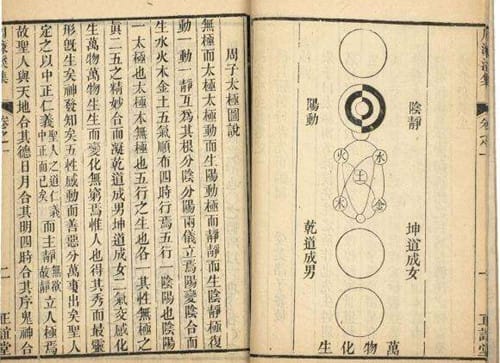 周濂溪集
卷之一
一
正誼堂
陰靜
陽動
火
水
土
木
金
坤道成女
乾道成男
萬物化生
周子太極圖說
無極而太極太極動而生陽動極而靜靜而生陰靜極復
動一動一靜互為其根分陰分陽兩儀立焉陽變陰合而
生水火木金土五氣順布四時行焉五行一陰陽也陰陽
一太極也太極本無極也五行之生也各一其性無極之
真二五之精妙合而凝乾道成男坤道成女二氣交感化
生萬物萬物生生而變化無窮焉惟人也得其秀而最靈
形既生矣神發知矣五性感動而善惡分萬事出矣聖人
定之以中正仁義聖人之道仁義中正而已矣而主靜無欲故靜立人極焉
故聖人與天地合其德日月合其明四時合其序鬼神合
周濂溪集
卷之一
一
正誼堂